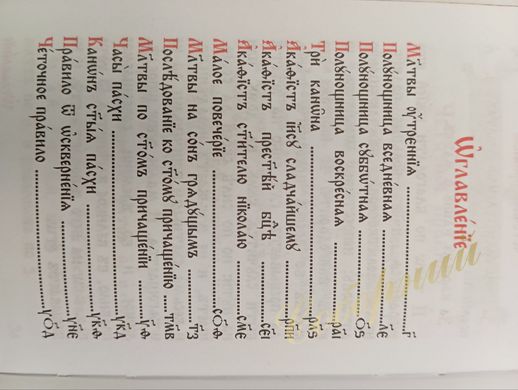 Ѡ҆главле́нїе
Мл҃твы ᲂу҆́трєннїѧ ........ г҃
Полꙋнощница вседне́внаѧ ........ л҃е
Полꙋнощница сꙋббѡ́тнаѧ ........ ѻ҃ѕ
Полꙋнощница воскре́снаѧ ........ ра҃і
Трѝ канѡ́на ........ рл҃ѕ
А҆ка́ѳїстъ і҆и҃сꙋ сладча́йшемꙋ ........ рп҃и
А҆ка́ѳїстъ прест҃ѣ́й бц҃ѣ ........ се҃і
А҆ка́ѳїстъ ст҃и́телю нїкола́ю ........ см҃е
Ма́лое повече́рїе ........ сѻ҃ѳ
Мл҃твы на со́нъ грѧдꙋ́щымъ ........ т҃з
Послѣ́дованїе ко ст҃о́мꙋ причаще́нїю ........ тм҃в
Мл҃твы по ст҃о́мъ причаще́нїи ........ у҃ѳ
Часы̀ па́схи ........ ук҃д
Канѡ́нъ ст҃ы́ѧ па́схи ........ ук҃ѳ
Пра́вило ѿ ѡ҆скверне́нїѧ ........ ун҃е
Че́точное пра́вило ........ уѻ҃д